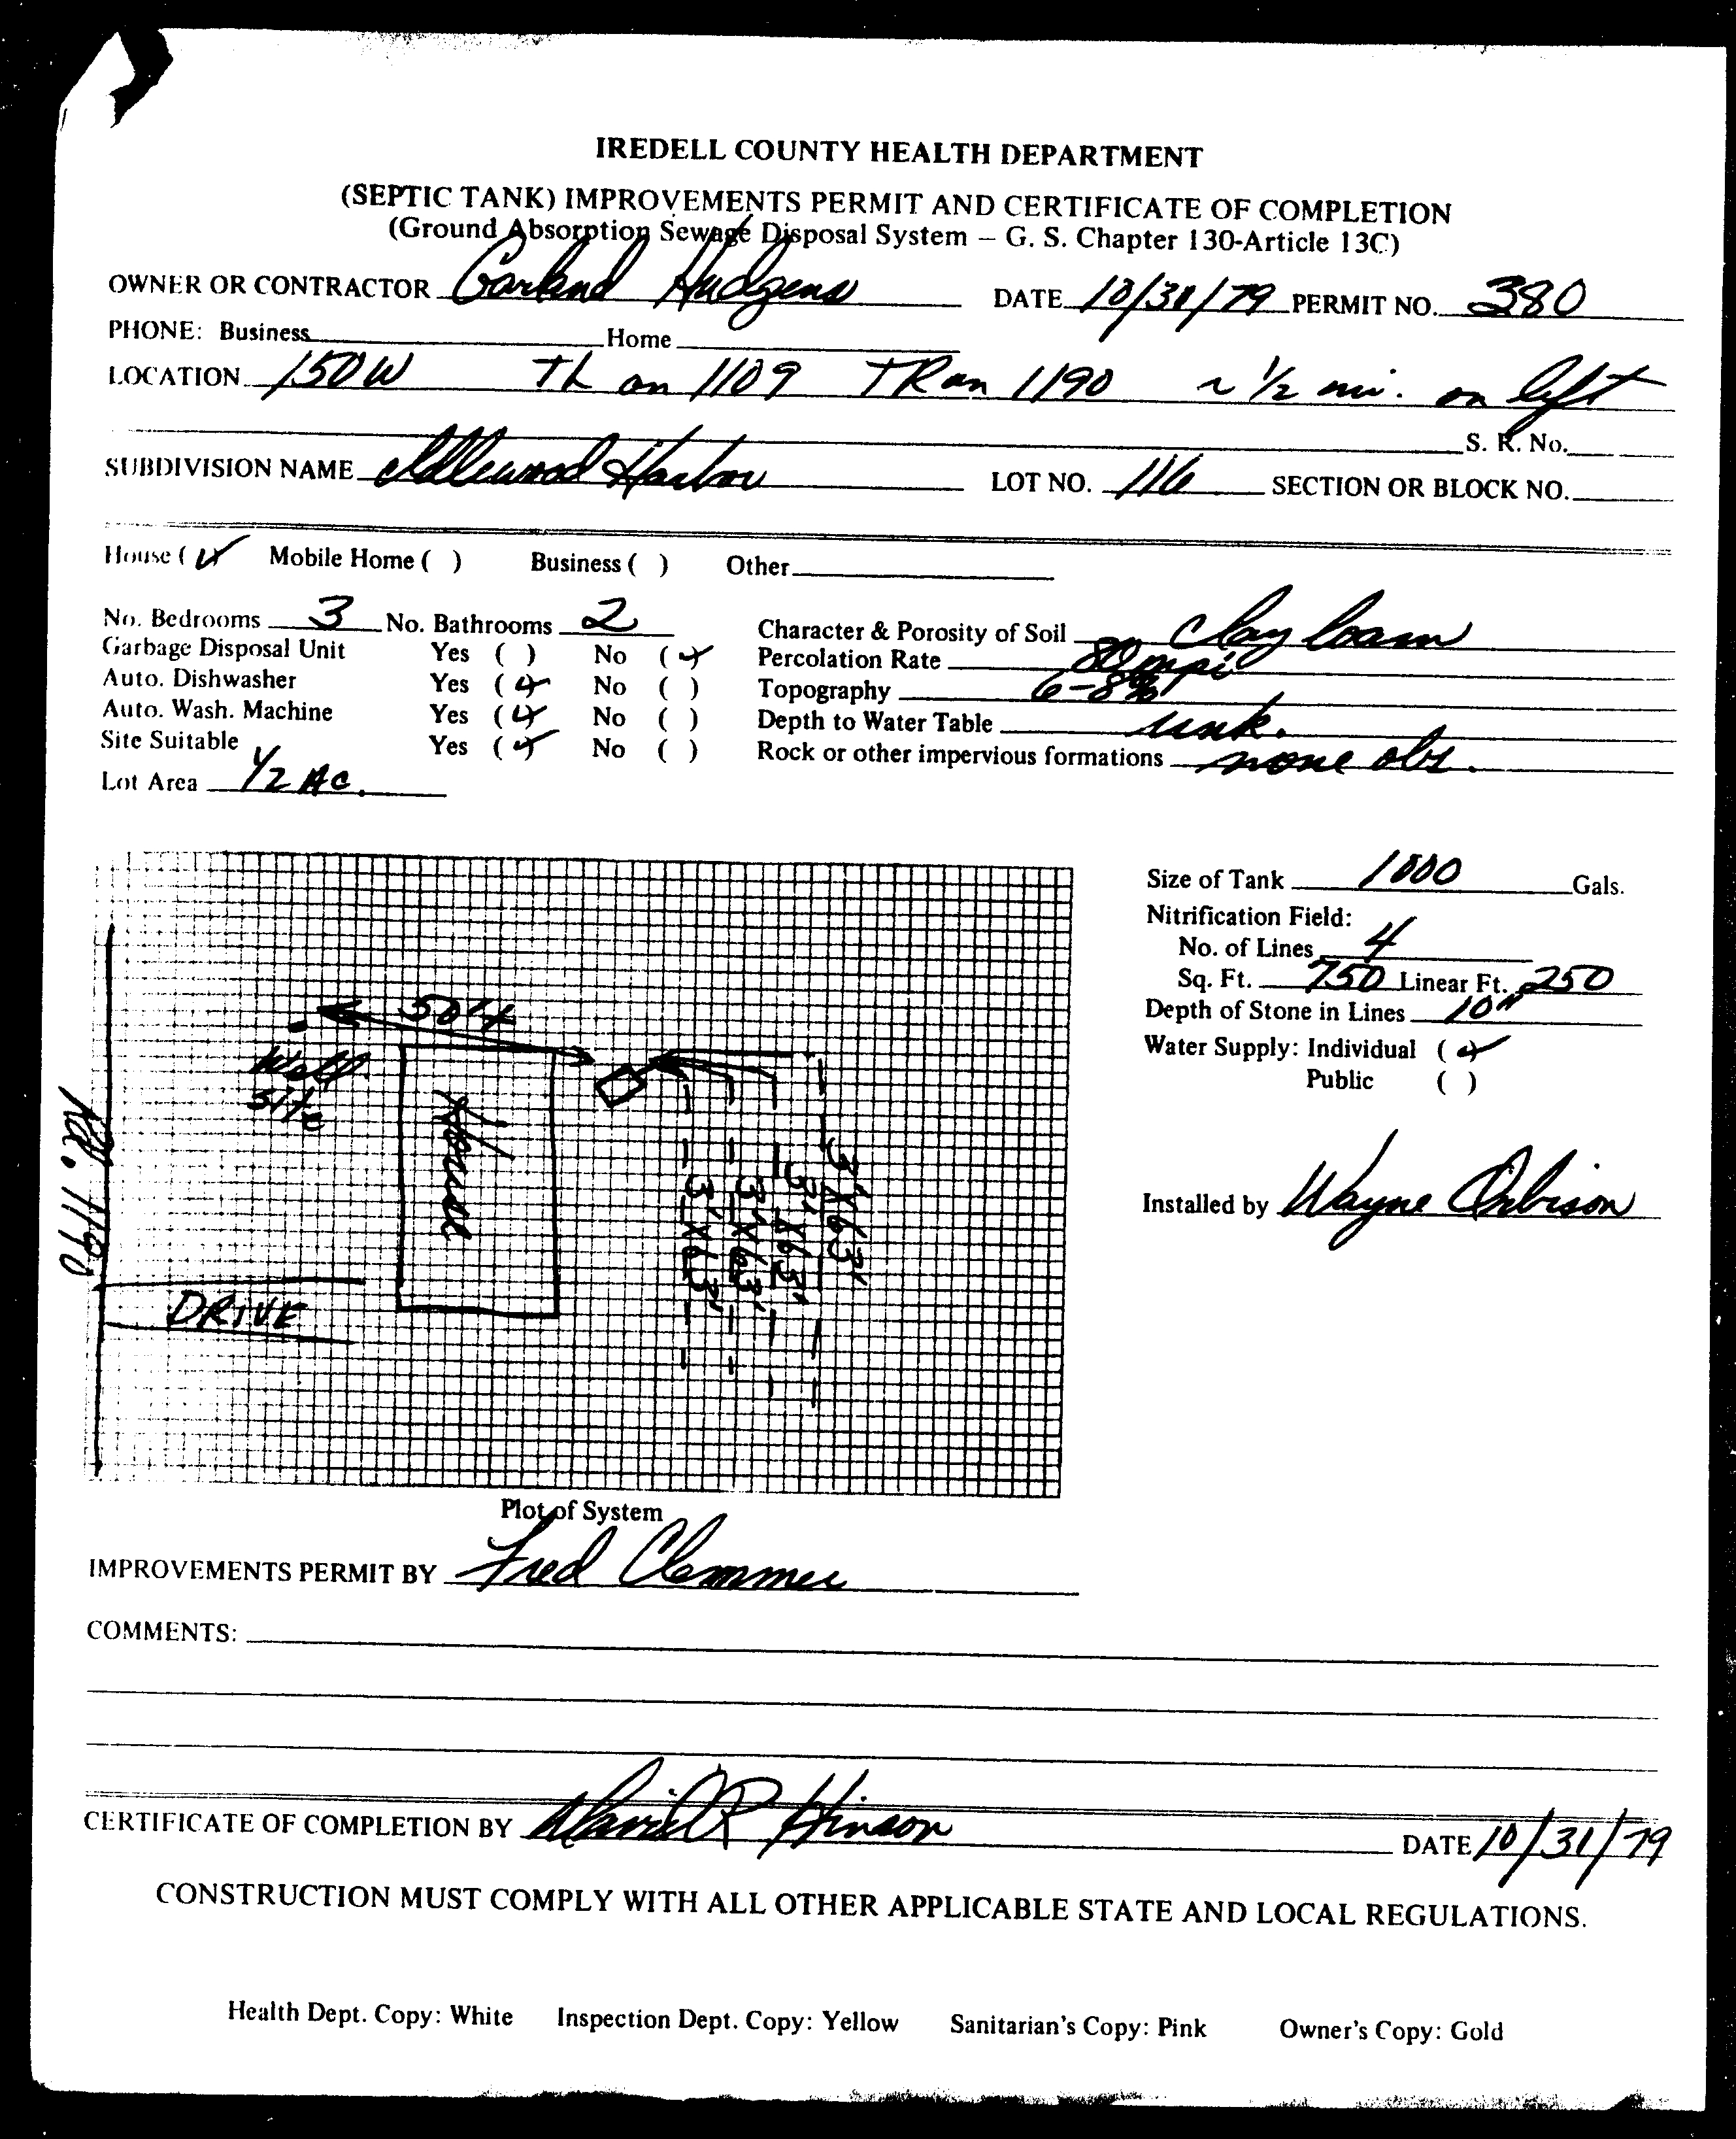 IREDELL COUNTY HEALTH DEPARTMENT
(SEPTIC TANK) IMPROVEMENTS PERMIT AND CERTIFICATE OF COMPLETION
(Ground Absorption Sewage Disposal System – G. S. Chapter 130-Article 13C)
OWNER OR CONTRACTOR Garland Hudgens DATE 10/31/79 PERMIT NO. 380
PHONE: Business Home
LOCATION 150W TL on 1109 TR on 1190 ~ 1/2 mi. on left
S. R. No.
SUBDIVISION NAME Idlewood Harbor LOT NO. 116 SECTION OR BLOCK NO.
House (✓) Mobile Home ( ) Business ( ) Other
No. Bedrooms 3 No. Bathrooms 2 Character & Porosity of Soil Clay loam
Garbage Disposal Unit Yes ( ) No (✓) Percolation Rate 80 mpi
Auto. Dishwasher Yes (✓) No ( ) Topography 6-8%
Auto. Wash. Machine Yes (✓) No ( ) Depth to Water Table unk.
Site Suitable Yes (✓) No ( ) Rock or other impervious formations none obs.
Lot Area 1/2 Ac.
Size of Tank 1000 Gals.
Nitrification Field:
No. of Lines 4
Sq. Ft. 750 Linear Ft. 250
Depth of Stone in Lines 10"
Water Supply: Individual (✓)
Public ( )
Installed by Wayne Orbison
50'+
Well
Site
House
Rd. 1190
DRIVE
3'X63'
3'X63'
3'X63'
3'X63'
Plot of System
IMPROVEMENTS PERMIT BY Fred Clemmer
COMMENTS:
CERTIFICATE OF COMPLETION BY David R Hinson DATE 10/31/79
CONSTRUCTION MUST COMPLY WITH ALL OTHER APPLICABLE STATE AND LOCAL REGULATIONS.
Health Dept. Copy: White Inspection Dept. Copy: Yellow Sanitarian's Copy: Pink Owner's Copy: Gold